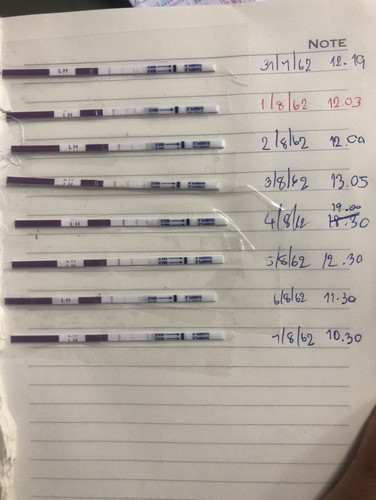 NOTE
LH 31/7/62 12.19
LH 1/8/62 12.03
LH 2/8/62 12.00
LH 3/8/62 13.05
19.00
LH 4/8/62 18.30
LH 5/8/62 12.30
LH 6/8/62 11.30
LH 7/8/62 10.30